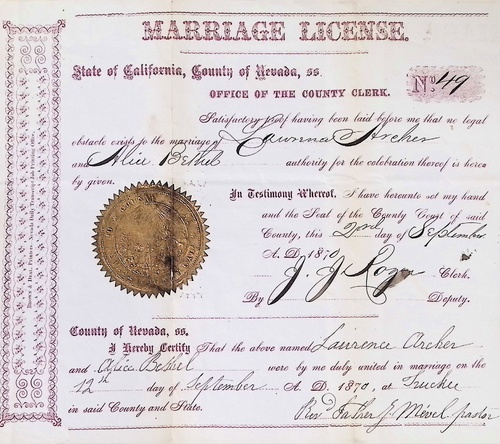 MARRIAGE LICENSE.
State of California, County of Nevada, ss.
OFFICE OF THE COUNTY CLERK.
No 49
Satisfactory proof having been laid before me that no legal
obstacle exists to the marriage of Archer
and Alice Bethel authority for the celebration thereof is here
by given.
In Testimony Whereof, I have hereunto set my hand
and the Seal of the County Court of said
County, this 2nd day of September
A. D. 1870
J. J. Clerk.
By Deputy.
County of Nevada, ss.
I Hereby Certify That the above named Laurence Archer
and Alice Bethel were by me duly united in marriage on the
12th day of September A. D. 1870, at Truckee
in said County and State.
Revd Father J. Mevel pastor